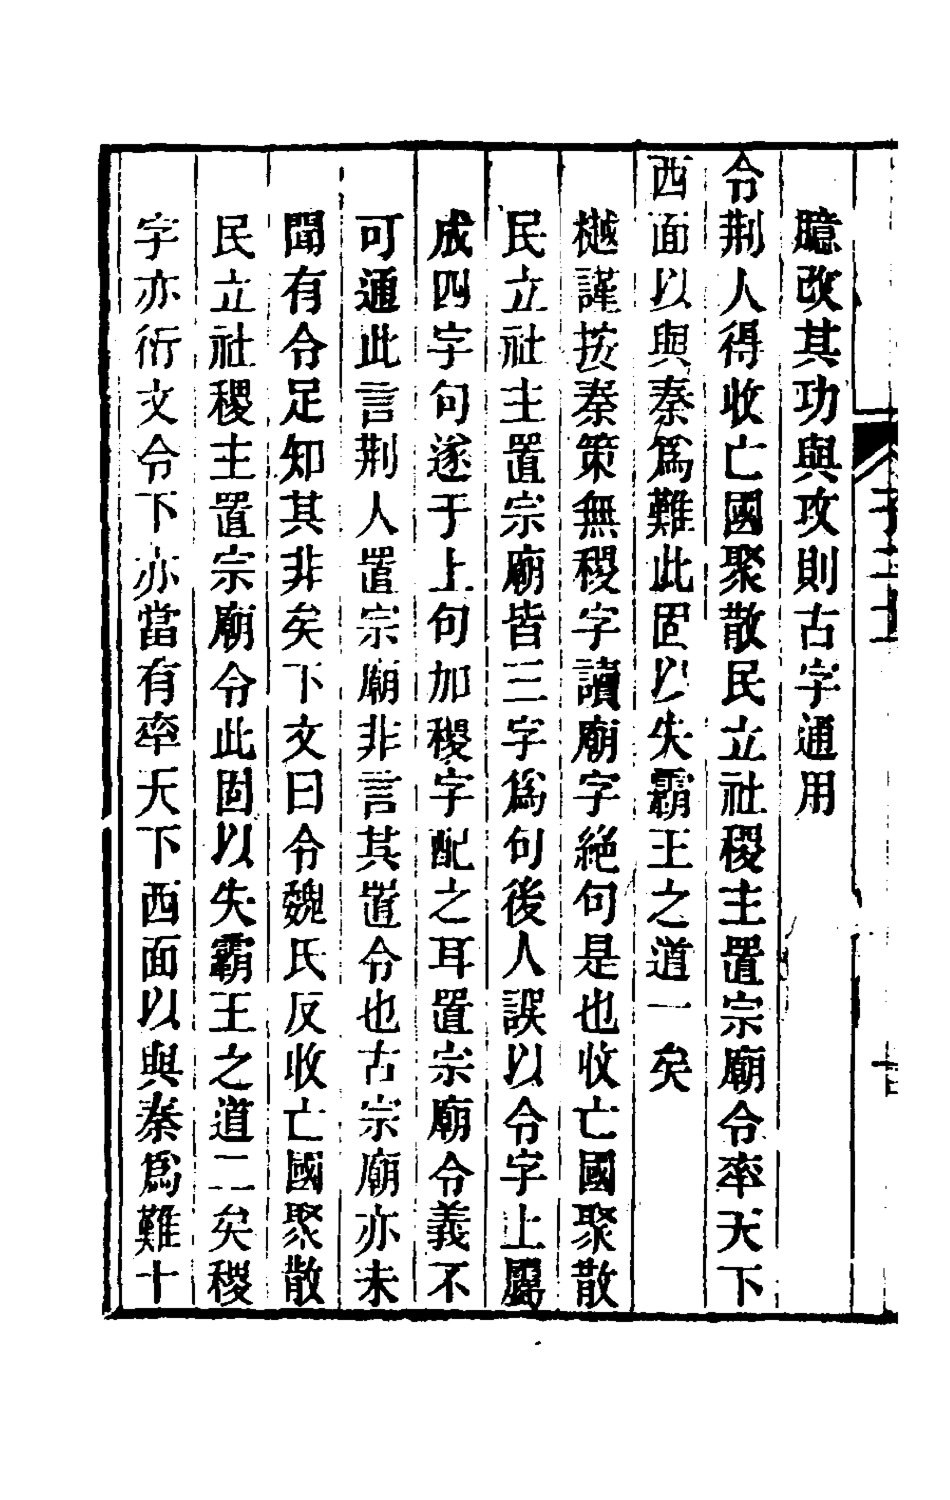 臆改其功與攻則古字通用
令荆人得收亡國聚散民立社稷主置宗廟令率天下
西面以與秦爲難此固以失霸王之道一矣
樾謹按秦策無稷字讀廟字絶句是也收亡國聚散
民立社主置宗廟皆三字爲句後人誤以令字上屬
成四字句遂于上句加稷字配之耳置宗廟令義不
可通此言荆人置宗廟非言其置令也古宗廟亦未
聞有令足知其非矣下文曰令魏氏反收亡國聚散
民立社稷主置宗廟令此固以失霸王之道二矣稷
字亦衍文令下亦當有率天下西面以與秦爲難十